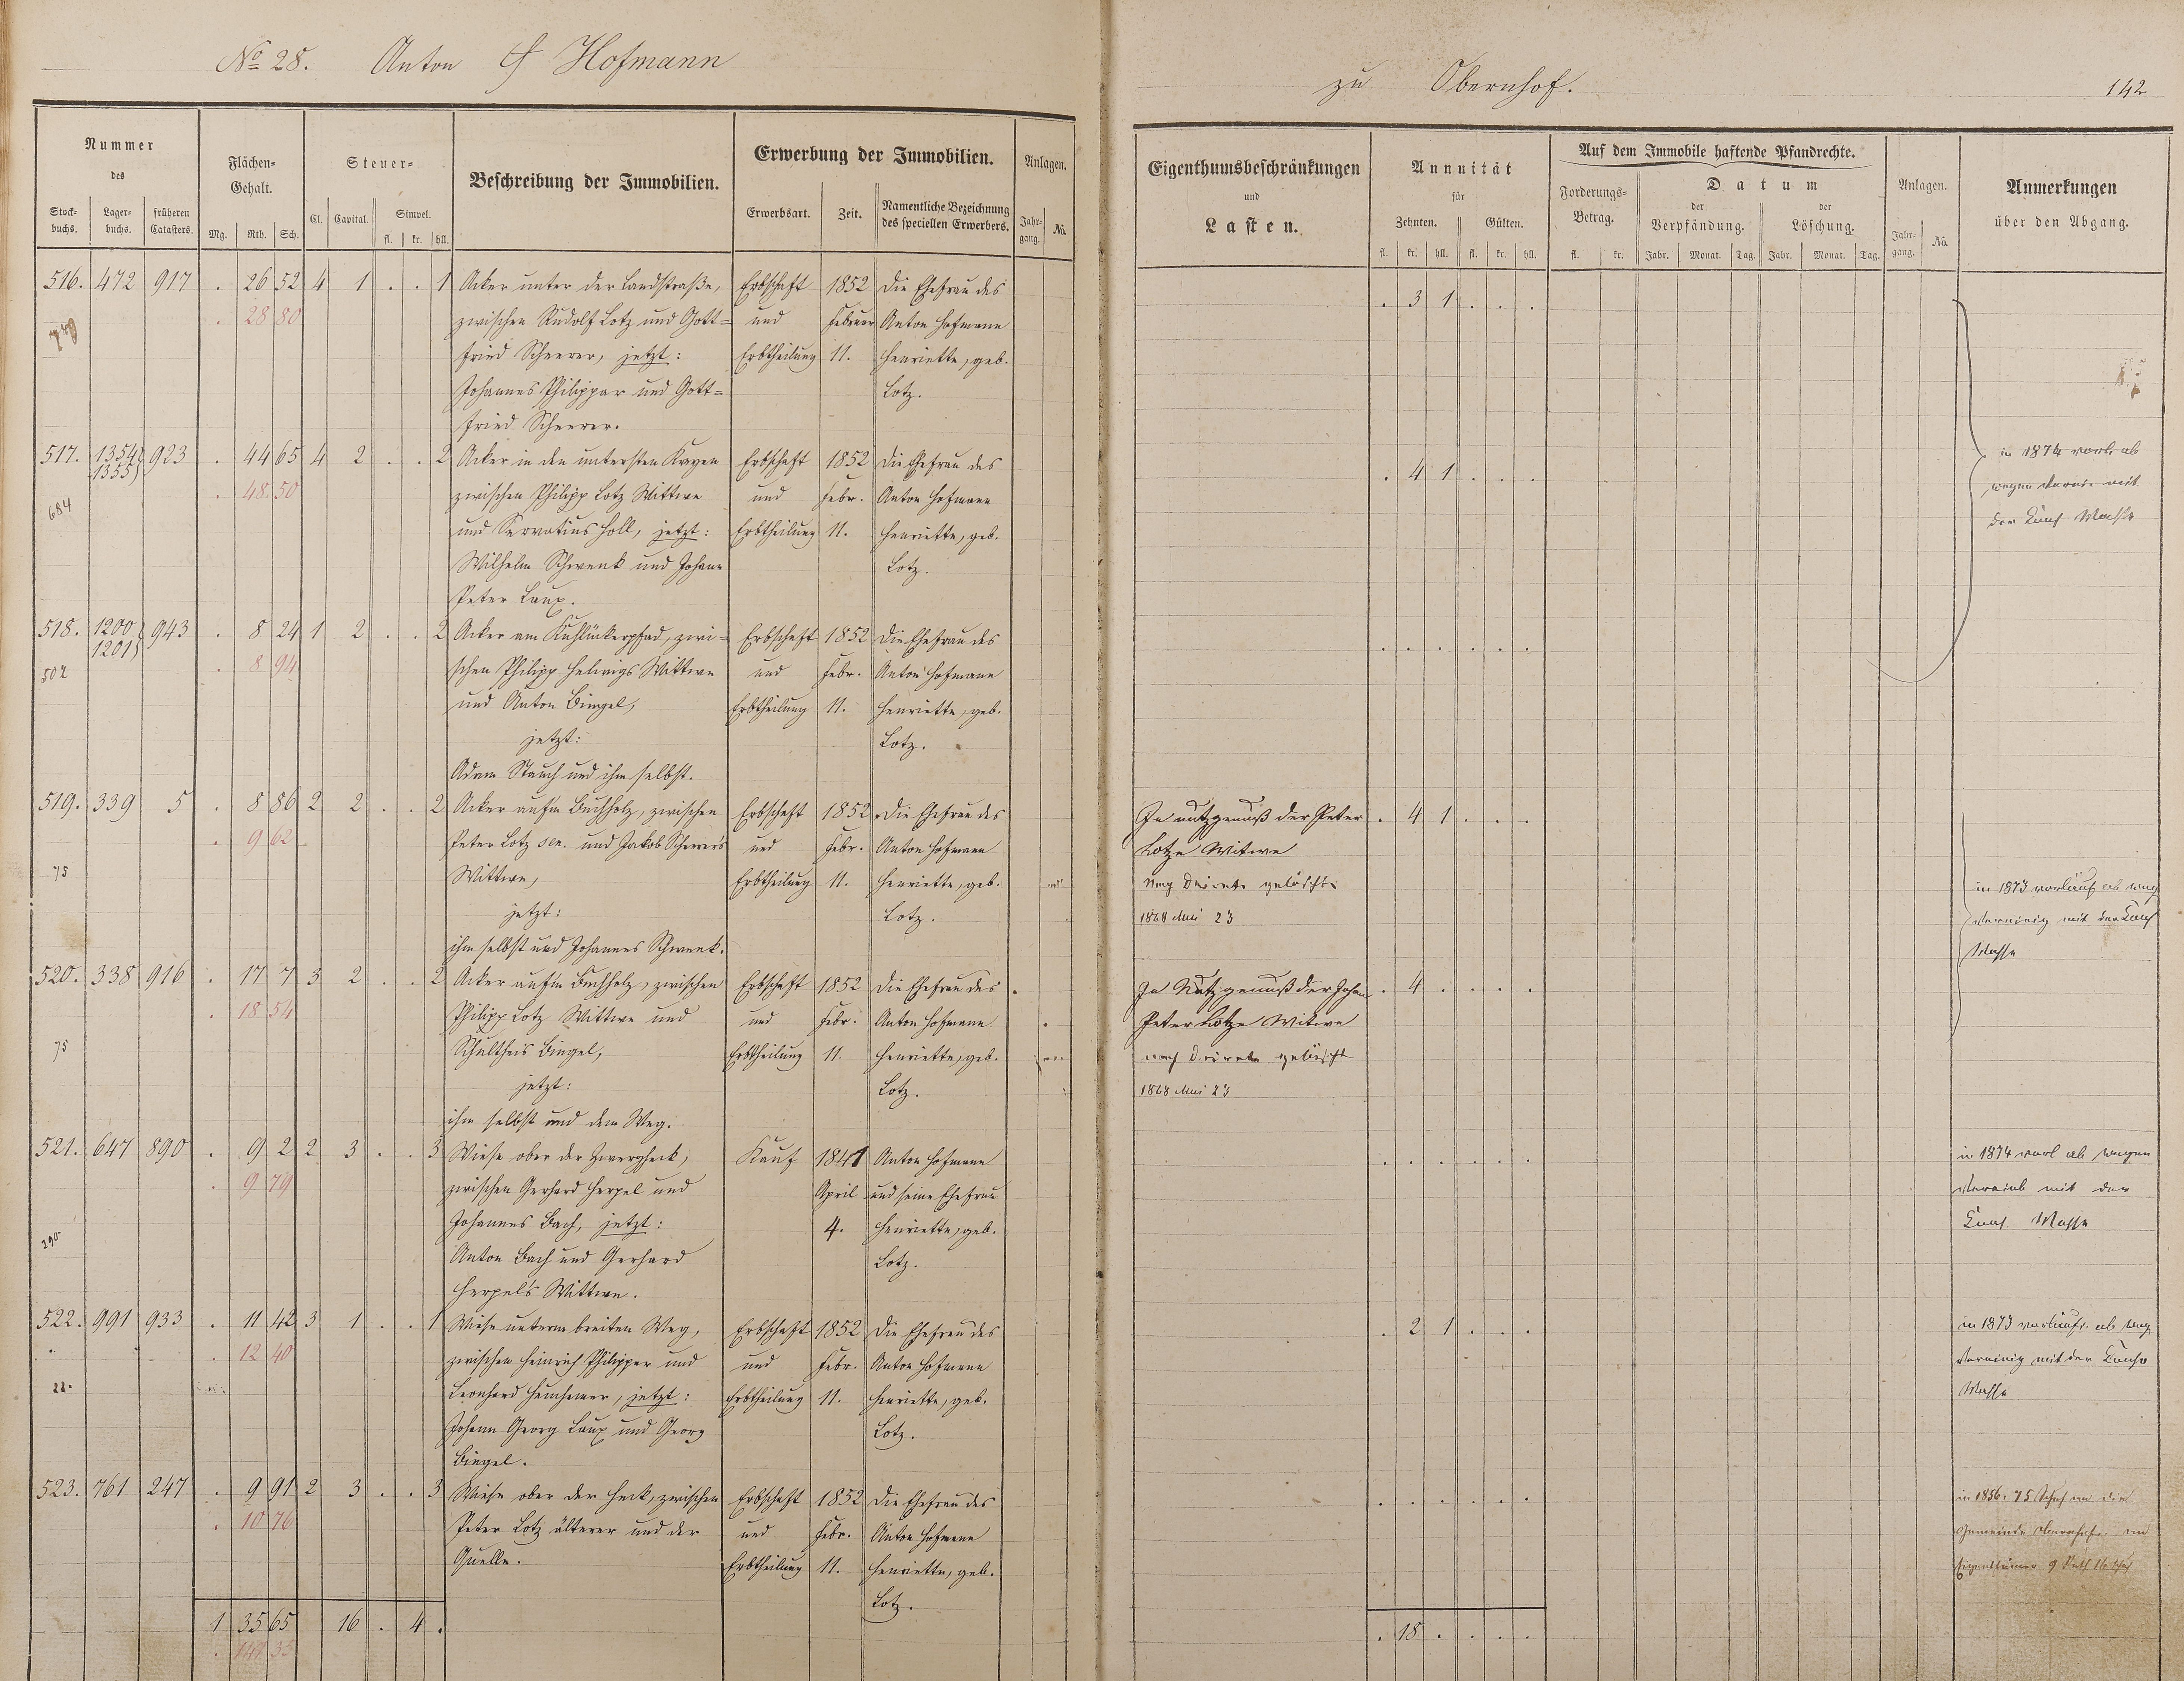 No 28. Anton Hofmann
zu Obernhof.
142
Nummer
des
Stock-
buchs.
Lager-
buchs.
früheren
Catasters.
Flächen-
Gehalt.
Mg. Rth. Sch.
Steuer-
Cl. Capital. Simpel.
fl. kr. hll.
Beschreibung der Immobilien.
Erwerbung der Immobilien.
Erwerbsart. Zeit. Namentliche Bezeichnung
des speciellen Erwerbers.
Anlagen.
Jahr-
gang. No.
Eigenthumsbeschränkungen
und
Lasten.
Annuität
für
Zehnten. Gülten.
fl. kr. hll. fl. kr. hll.
Auf dem Immobile haftende Pfandrechte.
Forderungs-
Betrag.
fl. kr.
Datum
der
Verpfändung.
der
Löschung.
Jahr. Monat. Tag. Jahr. Monat. Tag.
Anlagen.
Jahr-
gang. No.
Anmerkungen
über den Abgang.
516. 472 917 . 26 52 4 1 . . 1 Acker unter der Landstraße, Erbschaft 1852 Die Ehefrau des . 3 1 . . .
. 28 80 zwischen Rudolf Lotz und Gott= und Februar Anton Hofmann
fried Scheerer, jetzt: Erbtheilung 11. Henriette, geb.
Johannes Philippar und Gott= Lotz.
fried Scheerer.
517. 1354 923 . 44 65 4 2 . . 2 Acker in den untersten Kragen Erbschaft 1852 Die Ehefrau des . 4 1 . . . in 1874 vorl. ab
1355
. 48 50 zwischen Philipp Lotz Wittwe und Febr. Anton Hofmann wegen Verein. mit
684 und Servatius Holl, jetzt: Erbtheilung 11. Henriette, geb. der Cons Masse
Wilhelm Schwenk und Johann Lotz.
Peter Laux.
518. 1200 943 . 8 24 1 2 . . 2 Acker am Kuhlückerpfad, zwi= Erbschaft 1852 Die Ehefrau des . . . . . .
1201
502 . 8 94 schen Philipp Helwigs Wittwe und Febr. Anton Hofmann
und Anton Bingel, Erbtheilung 11. Henriette, geb.
jetzt: Lotz.
Adam Stauch und ihm selbst.
519. 339 5 . 8 86 2 2 . . 2 Acker auf'm Buchholz, zwischen Erbschaft 1852 Die Ehefrau des In nutzgenuß der Peter . 4 1 . . .
. 9 62 Peter Lotz sen. und Jakob Scheerer's und Febr. Anton Hofmann Lotze Witwe
75 Wittwe, Erbtheilung 11. Henriette, geb. gelöscht in 1873 vorläuf ab weg
jetzt: Lotz. 1868 Mai 23 Vereinig mit der Cons
ihm selbst und Johannes Schwenk. Masse
520. 338 916 . 17 7 3 2 . . 2 Acker auf'm Buchholz, zwischen Erbschaft 1852 Die Ehefrau des In Nutzgenuß der Johan . 4 . . . .
. 18 54 Philipp Lotz Wittwe und und Febr. Anton Hofmann Peter Lotze Witwe
75 Schultheis Bingel, Erbtheilung 11. Henriette, geb. gelöscht
jetzt: Lotz. 1868 Mai 23
ihm selbst und dem Weg.
521. 647 890 . 9 2 2 3 . . 3 Wiese ober der Zwergheck, Kauf 1841 Anton Hofmann . . . . . . in 1874 vorl ab wegen
. 9 79 zwischen Gerhard Herpel und April und seine Ehefrau Vereinb mit der
290 Johannes Bach, jetzt: 4. Henriette, geb. Cons. Masse
Anton Bach und Gerhard Lotz.
Herpel's Wittwe.
522. 991 933 . 11 42 3 1 . . 1 Wiese unterm breiten Weg, Erbschaft 1852 Die Ehefrau des . 2 1 . . . in 1873 vorläuf. ab weg
. 12 40 zwischen Heinrich Philippar und und Febr. Anton Hofmann Vereinig mit der Cons
Leonhard jetzt: Erbtheilung 11. Henriette, geb. Masse
Johann Georg Laux und Georg Lotz.
Bingel.
523. 761 247 . 9 91 2 3 . . 3 Wiese ober der Heck, zwischen Erbschaft 1852 Die Ehefrau des . . . . . . in 1856. 75 Schuh an die
. 10 76 Peter Lotz älterer und der und Febr. Anton Hofmann Gemeinde Obernhof.
Quelle. Erbtheilung 11. Henriette, geb. Eigenthümer 9 Ruth 16 Schuh
Lotz.
1 35 65 16 . 4 . . 18 . . . .
. 147 35